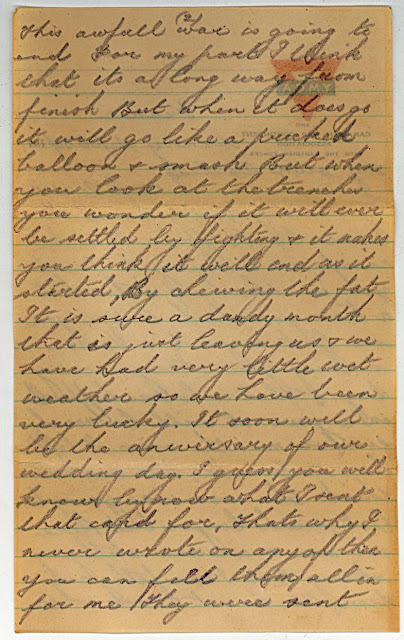 This awfull War is going to
end For my part I think
that its a long way from
finish But when it does go
it will go like a pricked
balloon & smash But when
you look at the trenches
you wonder if it will ever
be settled by fighting & it makes
you think it will end as it
started, By chewing the fat
It is sure a dandy month
that is just leaving us & we
have had very little wet
weather so we have been
very lucky. It soon will
be the aniversary of our
wedding day. I guess you will
know by now what I sent
that card for, thats why I
never wrote on any of them
you can fill them all in
for me they were sent